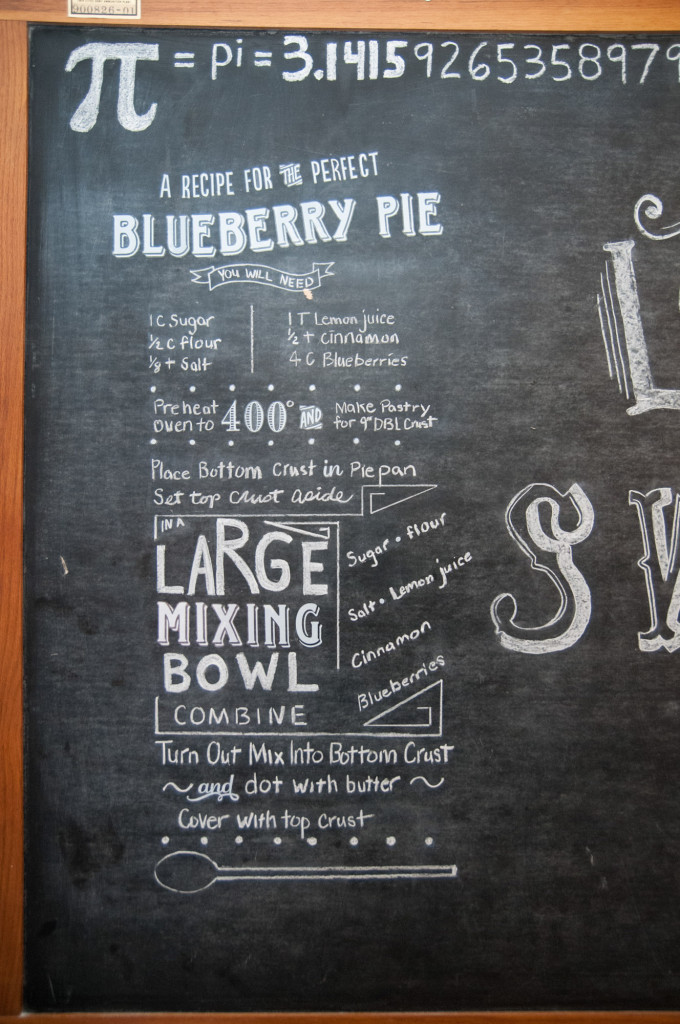 900826-01
π = pi = 3.14159265358979
A RECIPE FOR THE PERFECT
BLUEBERRY PIE
YOU WILL NEED
1 C Sugar
½ C flour
⅛ t Salt
1 T Lemon juice
½ t cinnamon
4 C Blueberries
Preheat
oven to
400°
AND
Make Pastry
for 9" DBL Crust
Place Bottom Crust in Pie pan
Set top crust aside
IN A
LARGE
MIXING
BOWL
COMBINE
Sugar • flour
Salt • Lemon juice
Cinnamon
Blueberries
Turn Out Mix Into Bottom Crust
~ and dot with butter ~
Cover with top crust
L
SW